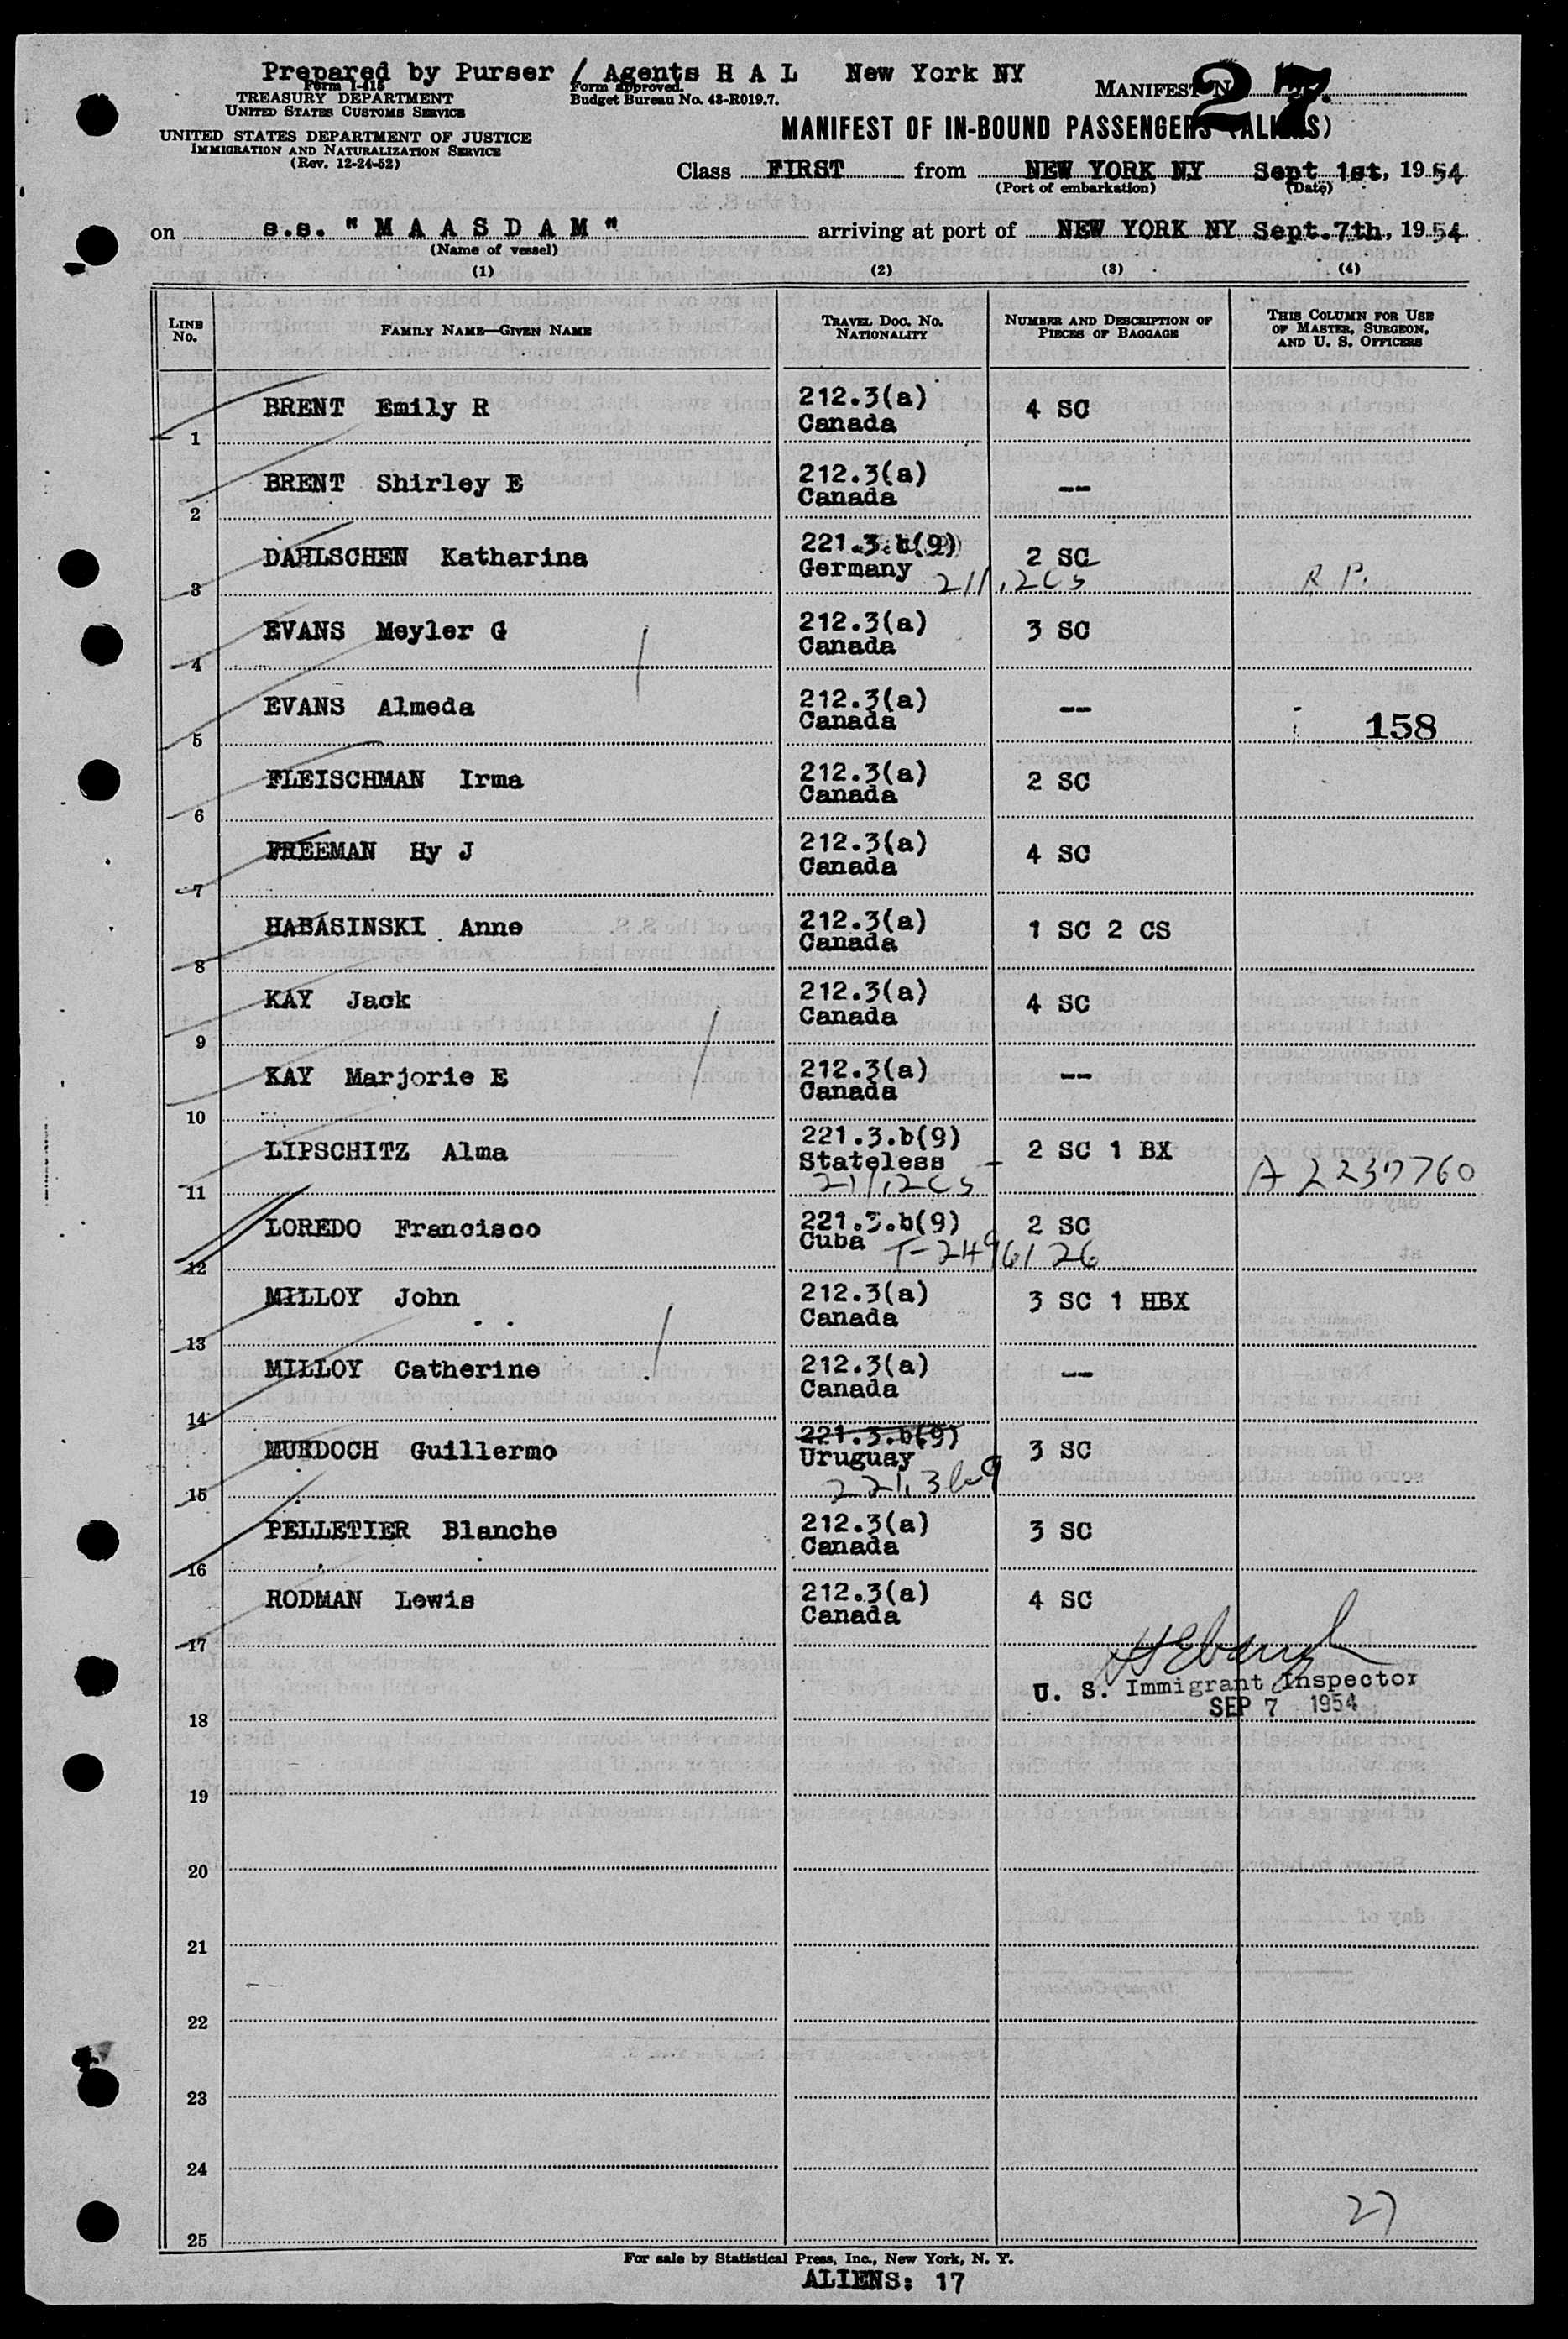 Prepared by Purser / Agents H A L New York NY
Form I-415
TREASURY DEPARTMENT
UNITED STATES CUSTOMS SERVICE
Form approved.
Budget Bureau No. 43-R019.7.
MANIFEST 27
UNITED STATES DEPARTMENT OF JUSTICE
IMMIGRATION AND NATURALIZATION SERVICE
(Rev. 12-24-52)
MANIFEST OF IN-BOUND PASSENGERS (ALIENS)
Class FIRST from NEW YORK NY Sept 1st, 1954
(Port of embarkation) (Date)
on s.s. " M A A S D A M " arriving at port of NEW YORK NY Sept.7th, 1954
(Name of vessel)
(1) (2) (3) (4)
LINE No. FAMILY NAME—GIVEN NAME TRAVEL DOC. NO. NATIONALITY NUMBER AND DESCRIPTION OF PIECES OF BAGGAGE THIS COLUMN FOR USE OF MASTER, SURGEON, AND U. S. OFFICERS
1 BRENT Emily R 212.3(a) Canada 4 SC
2 BRENT Shirley E 212.3(a) Canada --
3 DAHLSCHEN Katharina 221.3.b(9) Germany 211.2cs 2 SC R P.
4 EVANS Meyler G 212.3(a) Canada 3 SC
5 EVANS Almeda 212.3(a) Canada -- 158
6 FLEISCHMAN Irma 212.3(a) Canada 2 SC
7 FREEMAN Hy J 212.3(a) Canada 4 SC
8 HABASINSKI Anne 212.3(a) Canada 1 SC 2 CS
9 KAY Jack 212.3(a) Canada 4 SC
10 KAY Marjorie E 212.3(a) Canada --
11 LIPSCHITZ Alma 221.3.b(9) Stateless 211.2cs 2 SC 1 BX A 2237760
12 LOREDO Francisco 221.3.b(9) Cuba T-2496126 2 SC
13 MILLOY John 212.3(a) Canada 3 SC 1 HBX
14 MILLOY Catherine 212.3(a) Canada --
15 MURDOCH Guillermo 221.3.b(9) Uruguay 221.3b9 3 SC
16 PELLETIER Blanche 212.3(a) Canada 3 SC
17 RODMAN Lewis 212.3(a) Canada 4 SC
U. S. Immigrant Inspector
SEP 7 1954
18
19
20
21
22
23
24
25
27
For sale by Statistical Press, Inc., New York, N. Y.
ALIENS: 17